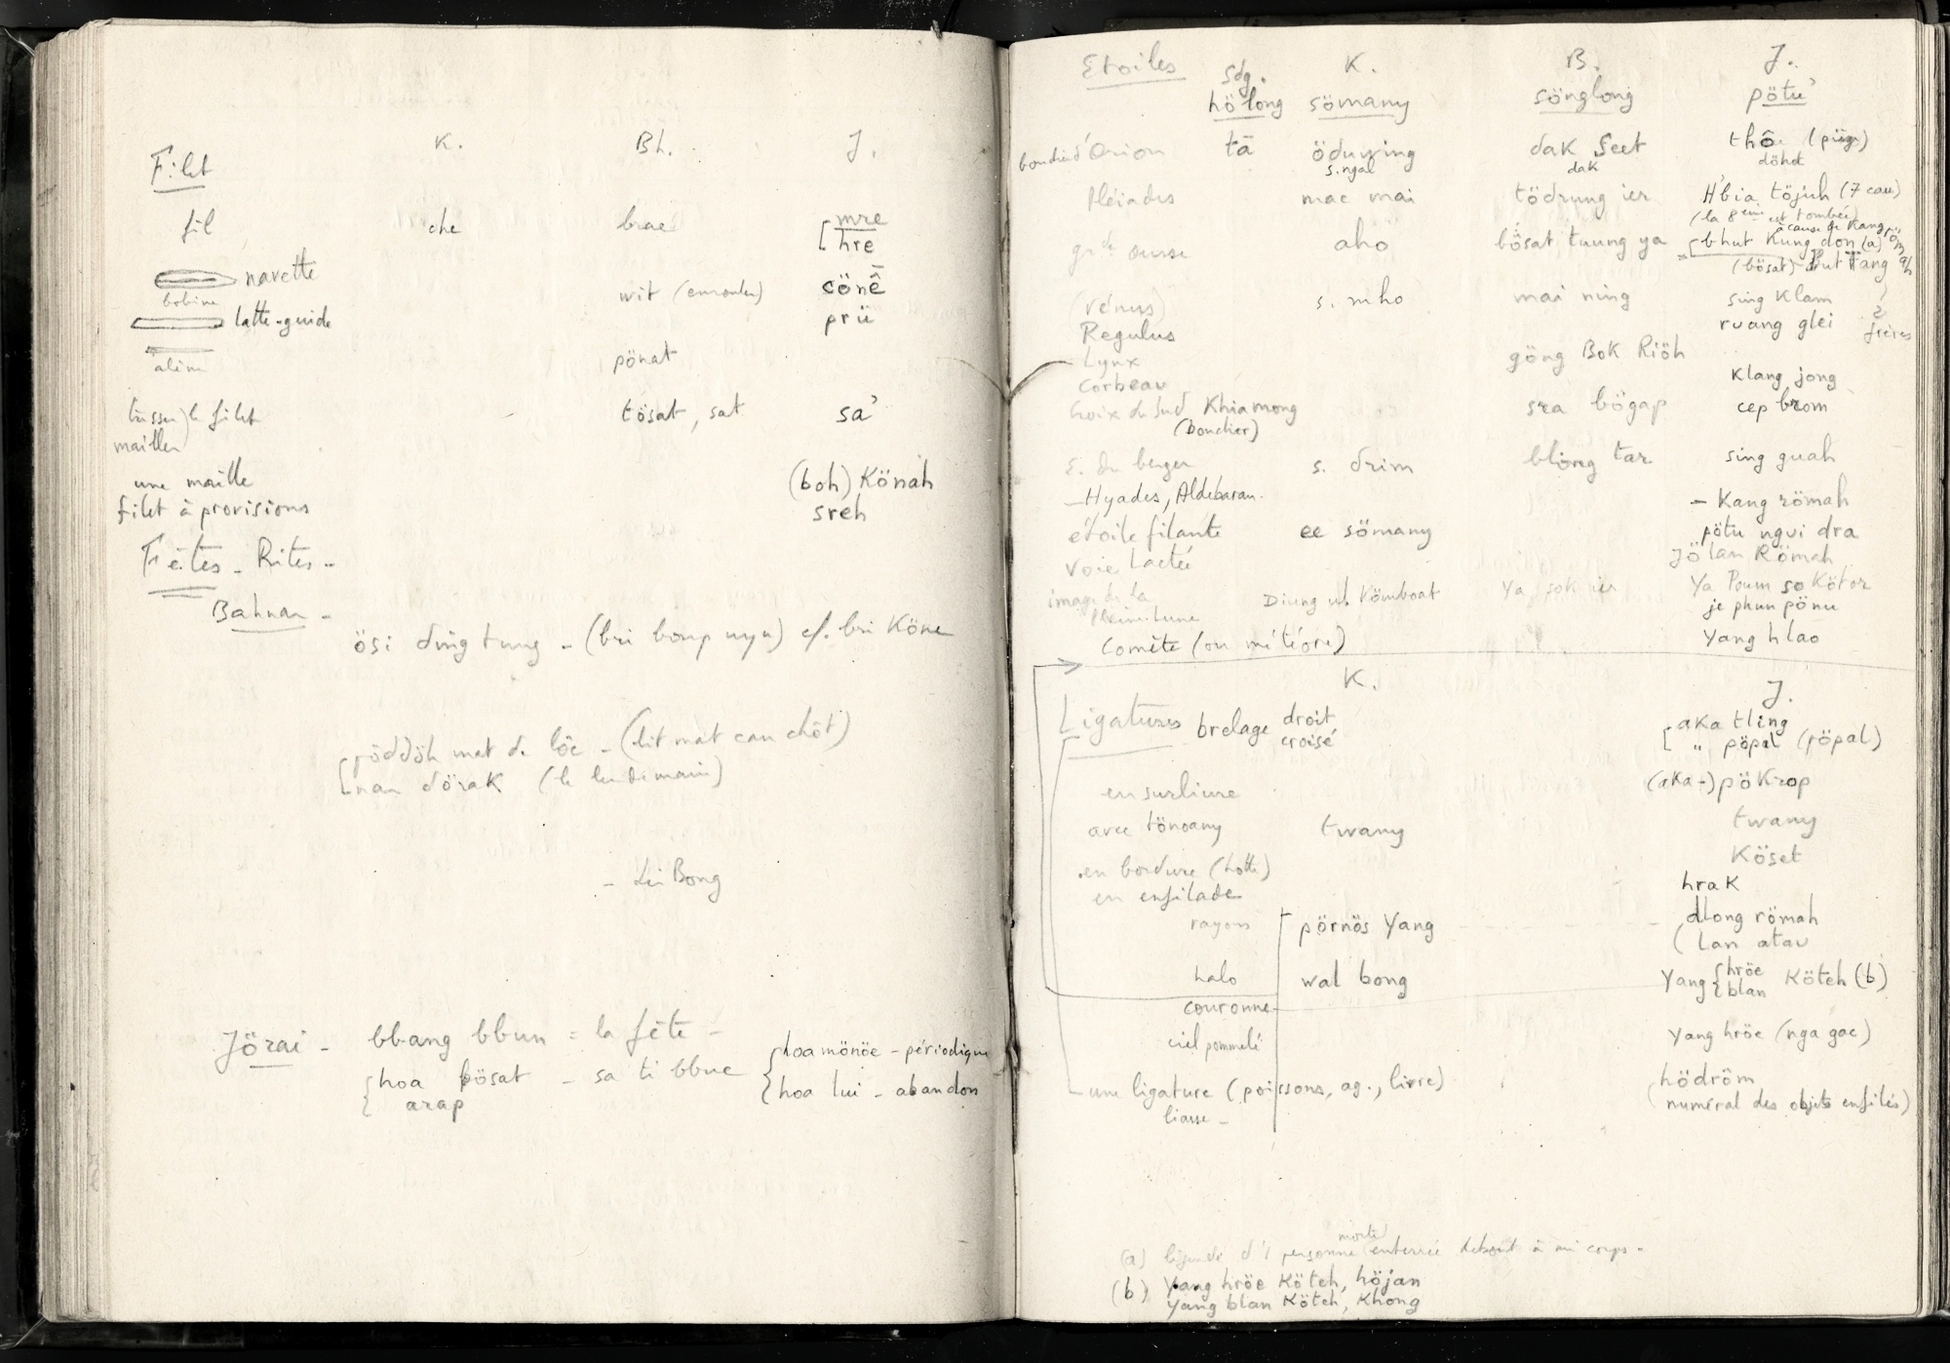 K. Bh. J.
Filet
fil che brae [mre
hre
navette
bobine wit (enrouler) cönê
latte-guide prü
alène pönat
tisser) le filet tösat, sat sa'
mailler
une maille (boh) Könah
filet à provisions sreh
Fêtes - Rites -
Bahnar -
ösi ding tung - (bri bong nyu) cf. bri Köne
[pöddöh mat de lôc - (lit mat can chôt)
nan dörak (le lendemain)
- Li Bong
Jörai - bbang bbun = la fête -
{hoa pösat - sa ti bbuc {hoa mönöe - périodique
arap hoa lui - abandon
Etoiles Sdg. K. B. J.
hölong sömany sönglong pötu'
d'Orion tā öduṿing dak Seet thô (piège)
s. ngal dak döhot
Pléiades mac mai tödrung ier H'bia töjuh (7 cau)
(la 8ème est tombée)
à cause de Kang römah
grde ourse ahö bösat tuung ya [bhut Kung don (a)
(bösat) but Tang
(vénus) s. mho mai ning sing Klam
Regulus ruang glei 2 frères
Lynx göng Bok Riöh
Corbeau Klang jong
Croix du Sud Khiamong sra bögap cep brom
(bouclier)
E. du berger s. drim blöng tar sing guah
- Hyades, Aldebaran. - Kang römah
étoile filante ee sömany pötu ngui dra
Voie Lactée Jölan Römah
image de la Diung ul Kömboat Ya sok ier Ya Poum so Kötor
pleine lune je phun pönu
Comète (ou météore) Yang hlao
K. J.
Ligatures brelage droit [aka tling
croisé " pöpal (pöpal)
en surliure (aka-) pöKrop
avec tönoany twany twany
en bordure (hotte) Köset
en enfilade hrak
rayons pörnös Yang dlong römah
( Lan atau
halo wal bong Yang {hröe Köteh (b)
couronne blan
ciel pommelé Yang hröe (nga gac)
une ligature (poissons, ag., livre) hödröm
liasse - (numéral des objets enfilés)
(a) légende d'1 personne morte enterrée debout à mi corps -
(b) Yang hröe Köteh, höjan
Yang blan Köteh, Khong